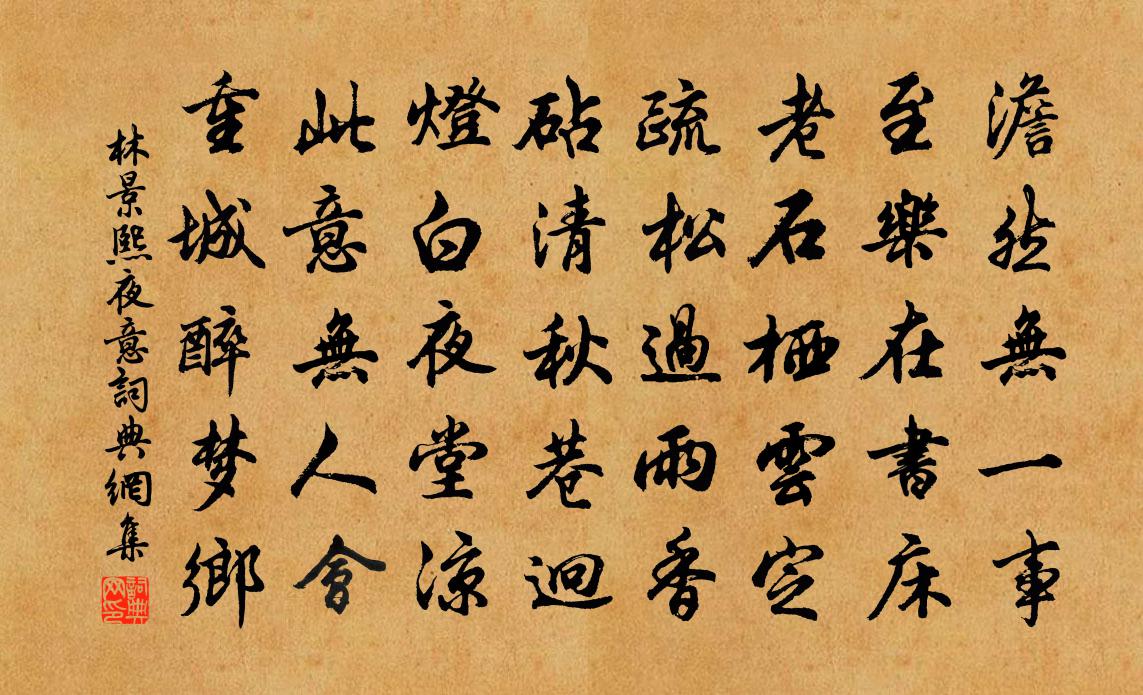 澹然無一事
至樂在書床
老石栖雲定
疏松過雨香
砧清秋巷迥
燈白夜堂涼
此意無人會
重城醉梦鄉
林景熙夜意詞典網集
詞典網印